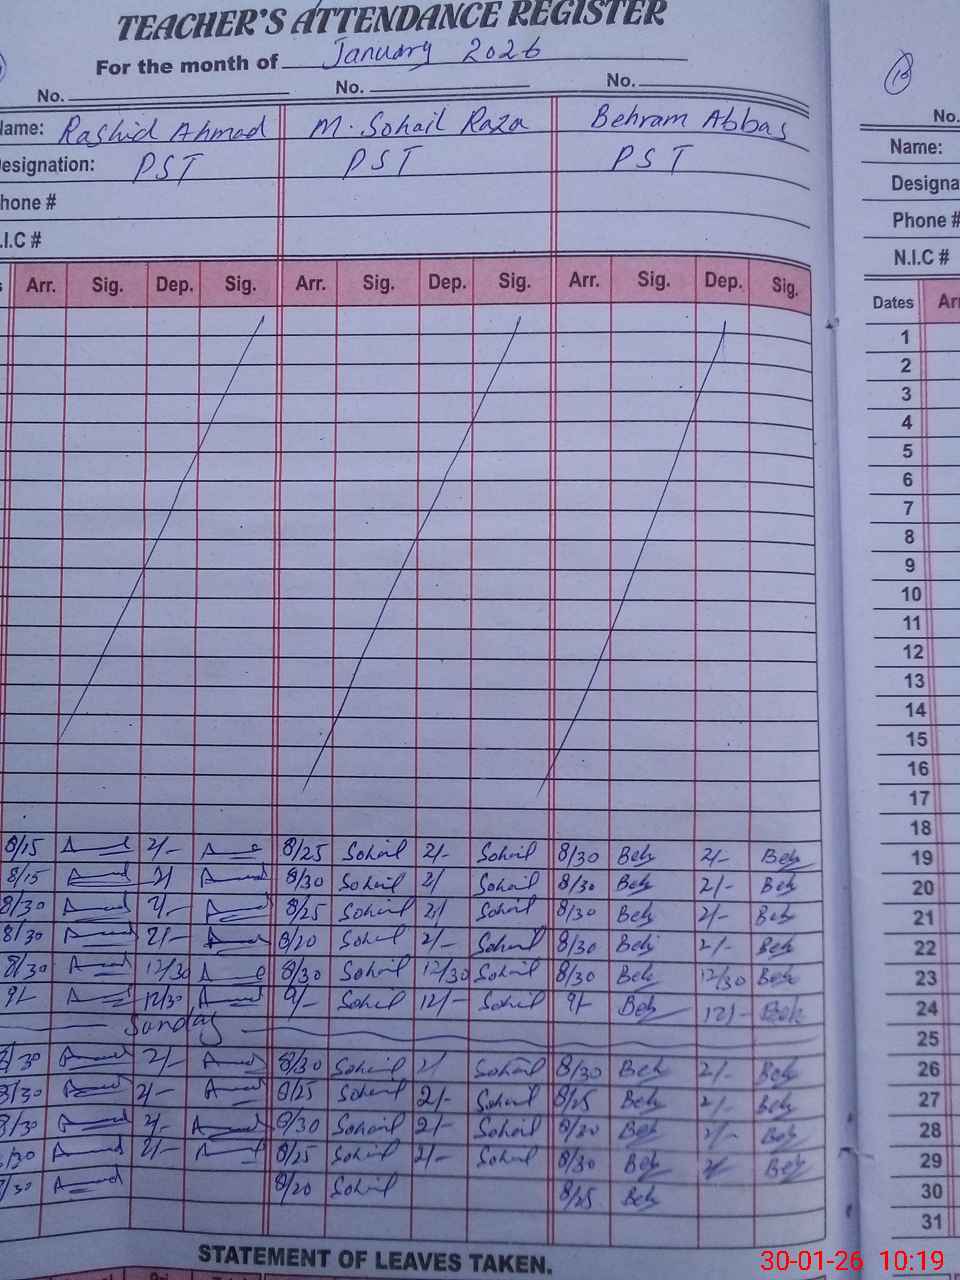 TEACHER'S ATTENDANCE REGISTER
For the month of January 2026
No. No. No.
Name: Rashid Ahmad M. Sohail Raza Behram Abbas
Designation: PST PST PST
Phone #
N.I.C #
Arr. Sig. Dep. Sig. Arr. Sig. Dep. Sig. Arr. Sig. Dep. Sig.
8/15 2/- 8/25 Sohail 2/- Sohail 8/30 Beh 2/- Beh
8/15 2/ 8/30 Sohail 2/ Sohail 8/30 Beh 2/- Beh
8/30 2/- 8/25 Sohail 2/ Sohail 8/30 Beh 2/- Beh
8/30 2/- 8/20 Sohail 2/- Sohail 8/30 Beh 2/- Beh
8/30 12/30 8/30 Sohail 12/30 Sohail 8/30 Beh 12/30 Beh
9/- 12/30 9/- Sohail 12/- Sohail 9/- Beh 12/- Beh
Sunday
8/30 2/- 8/30 Sohail 2/ Sohail 8/30 Beh 2/- Beh
8/30 2/- 8/25 Sohail 2/- Sohail 8/25 Beh 2/- Beh
8/30 2/- 8/30 Sohail 2/- Sohail 8/30 Beh 2/- Beh
8/30 2/- 8/25 Sohail 2/- Sohail 8/30 Beh Beh
8/30 8/20 Sohail 8/25 Beh
STATEMENT OF LEAVES TAKEN.
No.
Name:
Designa
Phone #
N.I.C #
Dates Arr
1
2
3
4
5
6
7
8
9
10
11
12
13
14
15
16
17
18
19
20
21
22
23
24
25
26
27
28
29
30
31
30-01-26 10:19